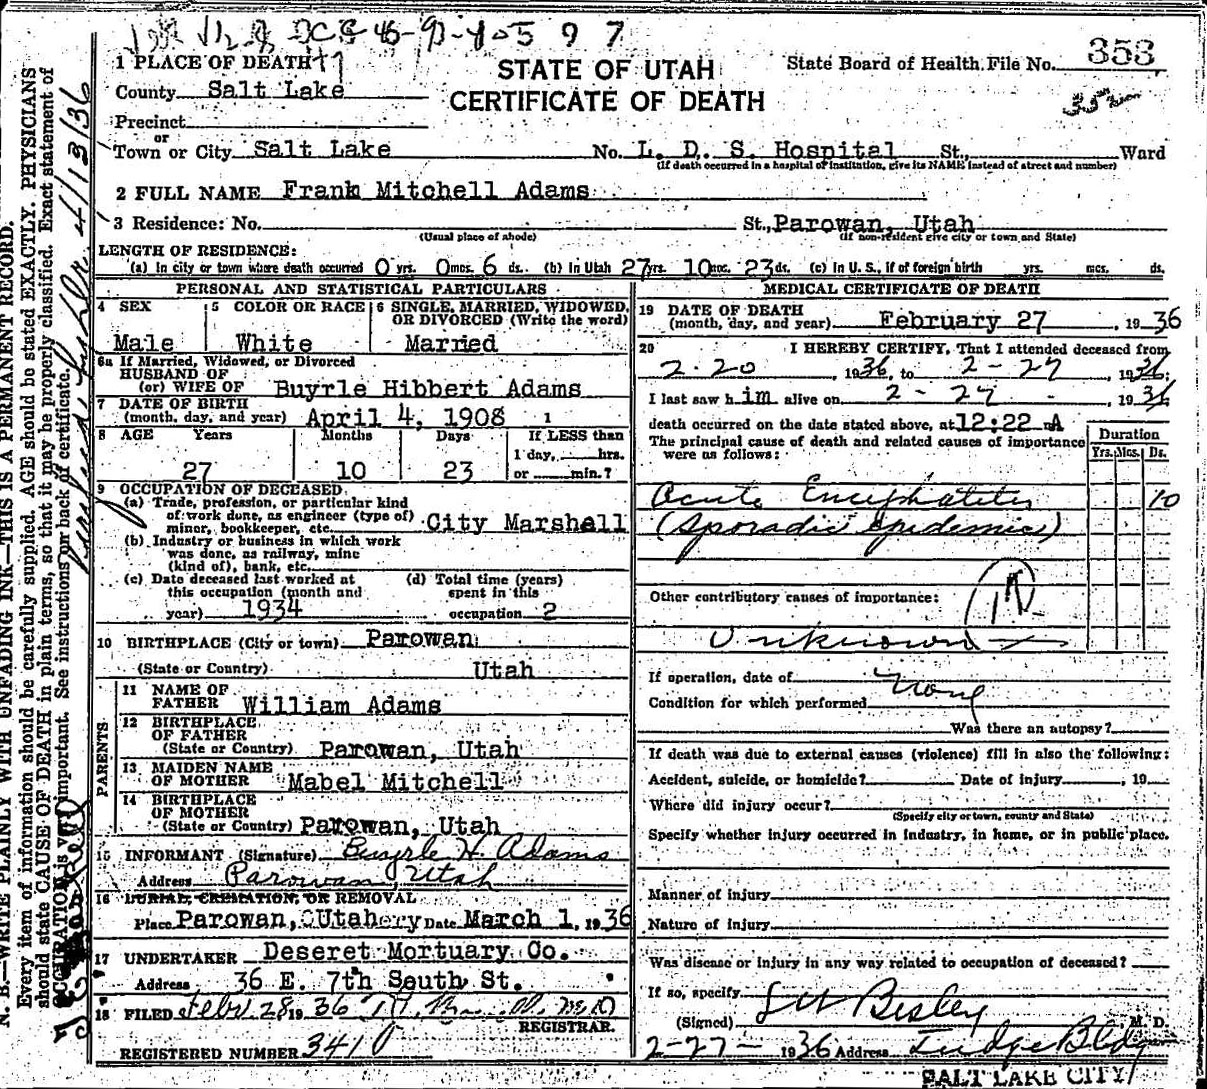 5 9 7
1 PLACE OF DEATH
STATE OF UTAH
State Board of Health File No. 353
County Salt Lake
CERTIFICATE OF DEATH
352
Precinct
or
Town or City Salt Lake No. L. D. S. Hospital St., Ward
(If death occurred in a hospital or institution, give its NAME instead of street and number)
2 FULL NAME Frank Mitchell Adams
3 Residence: No. St., Parowan, Utah
(Usual place of abode) (If non-resident give city or town and State)
LENGTH OF RESIDENCE:
(a) In city or town where death occurred 0 yrs. 0 mos. 6 ds. (b) In Utah 27 yrs. 10 mos. 23 ds. (c) In U. S., if of foreign birth yrs. mos. ds.
PERSONAL AND STATISTICAL PARTICULARS
4 SEX
Male
5 COLOR OR RACE
White
6 SINGLE, MARRIED, WIDOWED, OR DIVORCED (Write the word)
Married
6a If Married, Widowed, or Divorced
HUSBAND OF
(or) WIFE OF Buyrle Hibbert Adams
7 DATE OF BIRTH
(month, day, and year) April 4, 1908
8 AGE Years Months Days If LESS than
1 day, hrs.
27 10 23 or min.?
9 OCCUPATION OF DECEASED
(a) Trade, profession, or particular kind
of work done, as engineer (type of)
miner, bookkeeper, etc. City Marshell
(b) Industry or business in which work
was done, as railway, mine
(kind of), bank, etc.
(c) Date deceased last worked at
this occupation (month and
year) 1934
(d) Total time (years)
spent in this
occupation 2
10 BIRTHPLACE (City or town) Parowan
(State or Country) Utah
PARENTS
11 NAME OF
FATHER William Adams
12 BIRTHPLACE
OF FATHER
(State or Country) Parowan, Utah
13 MAIDEN NAME
OF MOTHER Mabel Mitchell
14 BIRTHPLACE
OF MOTHER
(State or Country) Parowan, Utah
15 INFORMANT (Signature) Buyrle H. Adams
Address Parowan, Utah
16 BURIAL, CREMATION, OR REMOVAL
Place Parowan, Utah Date March 1, 1936
17 UNDERTAKER Deseret Mortuary Co.
Address 36 E. 7th South St.
18 FILED Feby 28 1936
REGISTRAR.
REGISTERED NUMBER 3410
MEDICAL CERTIFICATE OF DEATH
19 DATE OF DEATH
(month, day, and year) February 27, 1936
20 I HEREBY CERTIFY, That I attended deceased from
2-20, 1936, to 2-27, 1936;
I last saw him alive on 2-27, 1936
death occurred on the date stated above, at 12:22 A
The principal cause of death and related causes of importance
were as follows:
Duration
Yrs. Mos. Ds.
Acute Encephalitis 10
(Sporadic Epidemic)
Other contributory causes of importance:
Unknown
If operation, date of None
Condition for which performed
Was there an autopsy?
If death was due to external causes (violence) fill in also the following:
Accident, suicide, or homicide? Date of injury, 19
Where did injury occur?
(Specify city or town, county and State)
Specify whether injury occurred in industry, in home, or in public place.
Manner of injury
Nature of injury
Was disease or injury in any way related to occupation of deceased?
If so, specify
(Signed) Besley M. D.
2-27- 1936 Address Judge Bldg
SALT LAKE CITY
N. B.—WRITE PLAINLY WITH UNFADING INK—THIS IS A PERMANENT RECORD.
Every item of information should be carefully supplied. AGE should be stated EXACTLY. PHYSICIANS
should state CAUSE OF DEATH in plain terms, so that it may be properly classified. Exact statement of
OCCUPATION is very important. See instructions on back of certificate.
4/13/36